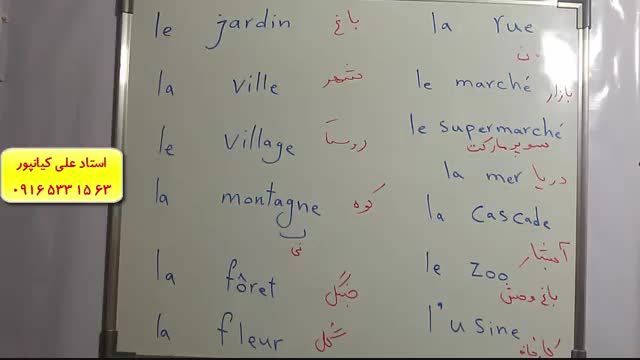 le jardin باغ
la ville شهر
le village روستا
la montagne کوه
نی
la fôret جنگل
la fleur گل
la rue
le marché بازار
le supermarché
سوپر مارکت
la mer دریا
la cascade
آبشار
le zoo
باغ وحش
l'usine
کارخانه
استاد علی کیانپور
۰۹۱۶ ۵۳۳ ۱۵ ۶۳